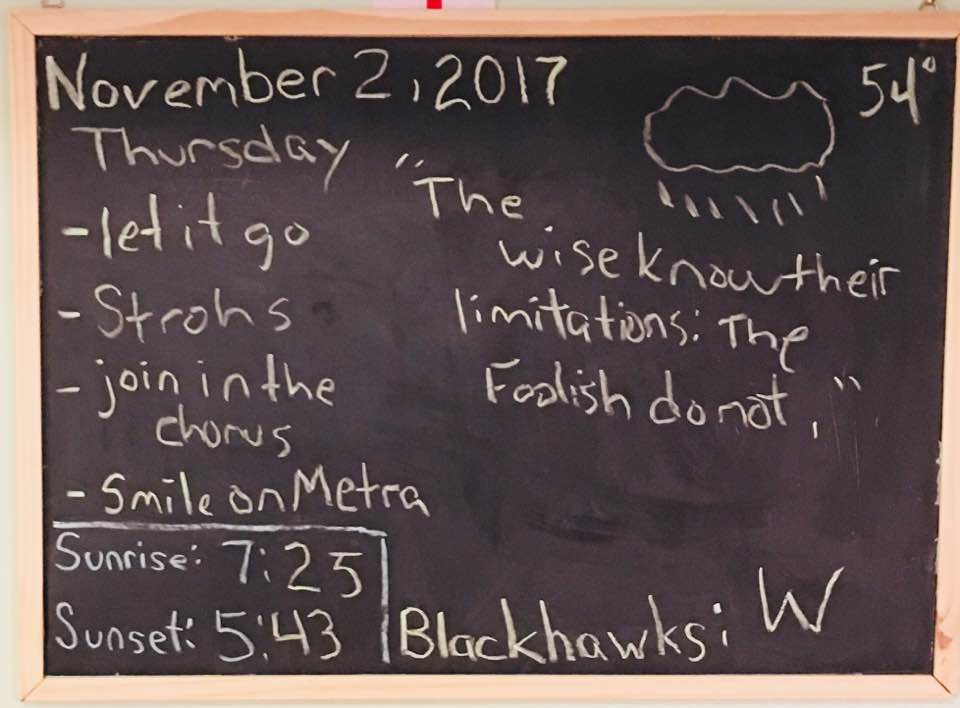 November 2, 2017
54°
Thursday
- let it go
- Strohs
- join in the
chorus
- Smile on Metra
"The
wise know their
limitations: The
Foolish do not."
Sunrise: 7:25
Sunset: 5:43
Blackhawks: W